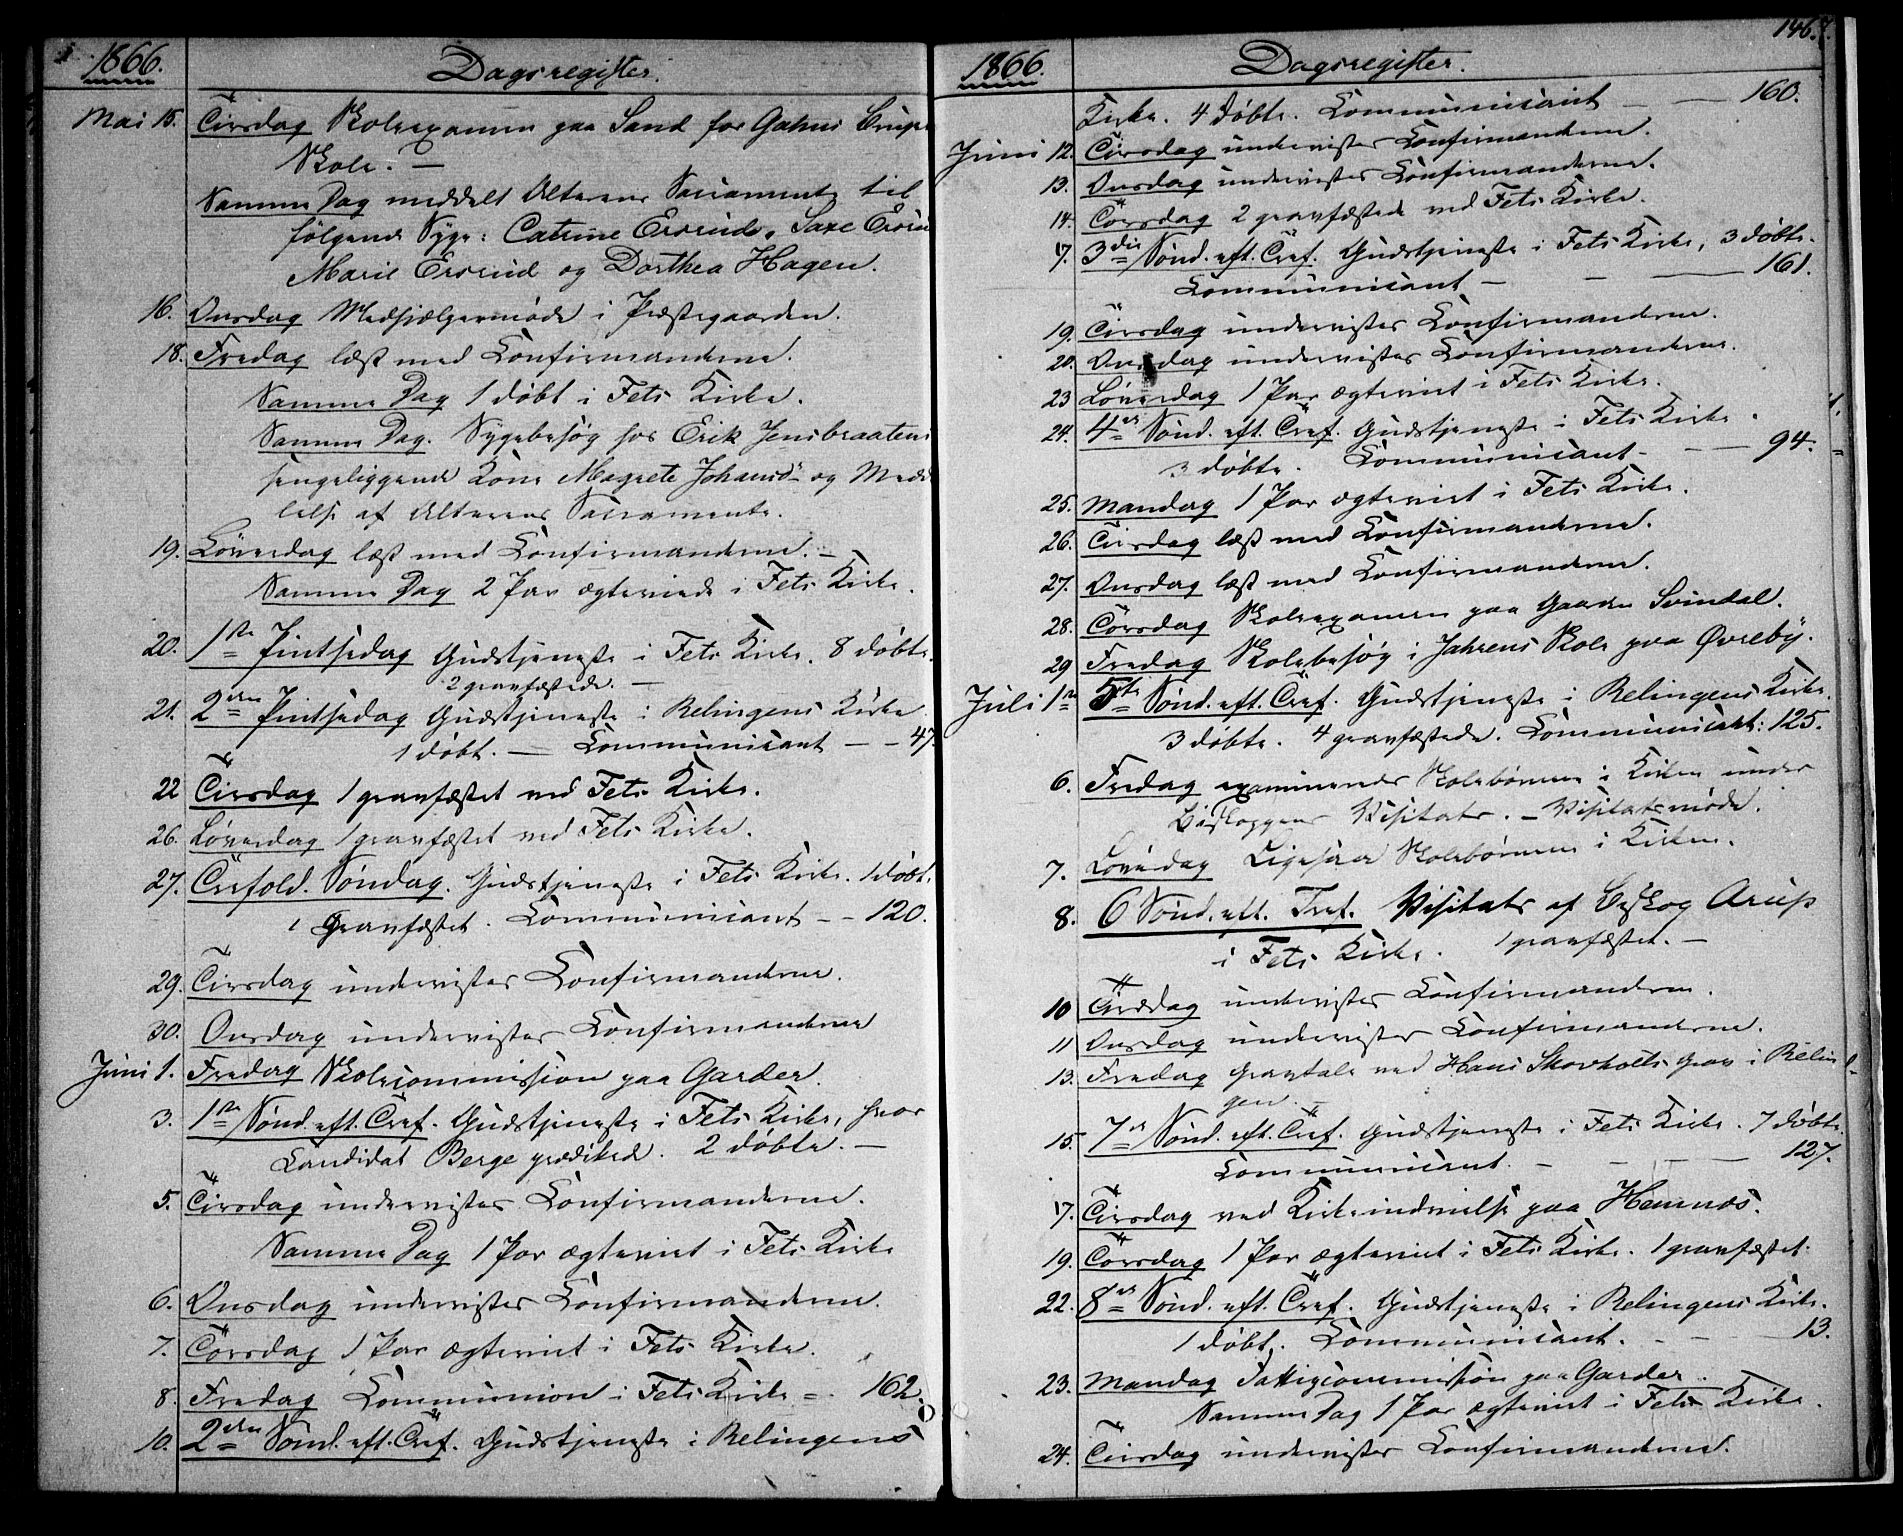 1866.
Dagsregister.
Mai 15. Tirsdag Skoleexamen paa Sand for Gahns Brugs
Skole. —
Samme Dag meddelt Alterens Sacramente til
følgende Syge: Catrine Ersrud, Saxe Ersrud
Marie Ersrud og Dorthea Hagen.
16. Onsdag Medhjælpermøde i Præstegaarden.
18. Fredag læst med Confirmanderne.
Samme Dag 1 døbt i Fets Kirke.
Samme Dag. Sygebesøg hos Erik Jensbraatens
sengeliggende Kone Magrete Johansd. og Medde
lelse af Alterens Sacramente.
19. Løverdag læst med Confirmanderne. —
Samme Dag 2 Par ægteviede i Fets Kirke.
20. 1ste Pintsedag Gudstjeneste i Fets Kirke. 8 døbte.
2 gravfæstede. —
21. 2den Pintsedag Gudstjeneste i Relingens Kirke
1 døbt. — Communicant — - 47.
22 Tirsdag 1 gravfæstet ved Fets Kirke.
26. Løverdag 1 gravfæstet ved Fets Kirke.
27. Trefold. Søndag. Gudstjeneste i Fets Kirke. 1 døbt.
1 gravfæstet. Communicant — - 120.
29. Tirsdag undervistes Confirmanderne.
30. Onsdag undervistes Confirmanderne
Juni 1. Fredag Skolecommission paa Garder.
3. 1ste Sønd. eft. Tref. Gudstjeneste i Fets Kirke, hvor
Candidat Berge prædikede. 2 døbte. —
5. Tirsdag undervistes Confirmanderne.
Samme Dag 1 Par ægteviet i Fets Kirke
6. Onsdag undervistes Confirmanderne.
7. Torsdag 1 Par ægteviet i Fets Kirke.
8. Fredag Communion i Fets Kirke - 162.
10. 2den Sønd. eft. Tref. Gudstjeneste i Relingens
146.
1866.
Dagsregister.
Kirke. 4 døbte. Communicant — — 160.
Juni 12. Tirsdag undervistes Confirmanderne.
13. Onsdag undervistes Confirmanderne.
14. Torsdag 2 gravfæstede ved Fets Kirke.
17. 3die Sønd. eft. Tref. Gudstjeneste i Fets Kirke, 3 døbte.
Communicant — — — 161.
19. Tirsdag undervistes Confirmanderne.
20. Onsdag undervistes Confirmanderne.
23 Løverdag 1 Par ægteviet i Fets Kirke.
24. 4de Sønd. eft. Tref. Gudstjeneste i Fets Kirke.
3 døbte. Communicant - — — 94.
25. Mandag 1 Par ægteviet i Fets Kirke.
26. Tirsdag læst med Confirmanderne.
27. Onsdag læst med Confirmanderne.
28. Torsdag Skoleexamen paa Gaarden Svindal.
29 Fredag Skolebesøg i Jahrens Skole paa Øvreby.
Juli 1ste 5te Sønd. eft. Tref. Gudstjeneste i Relingens Kirke.
3 døbte. 4 gravfæstede. Communicant: 125.
6. Fredag examineredes Skolebørnene i Kirken under
Biskoppens Visitats. — Visitatsmøde.
7. Løverdag Ligesaa Skolebørnene i Kirken.
8. 6 Sønd. eft. Tref. Visitats af Biskop Arup
i Fets Kirke. 1 gravfæstet. —
10 Tirsdag undervistes Confirmanderne.
11 Onsdag undervistes Confirmanderne.
13. Fredag Gravtale ved Hans Skovholts Grav i Relin
gen. —
15. 7de Sønd. eft. Tref. Gudstjeneste i Fets Kirke. 7 døbte.
Communicant. — — — 127.
17. Tirsdag ved Kirkeindvielse paa Hemnæs.
19. Torsdag 1 Par ægteviet i Fets Kirke. 1 gravfæstet.
22. 8de Sønd. eft. Tref. Gudstjeneste i Relingens Kirke.
1 døbt. Communicant. — — 13.
23. Mandag Fattigcommission paa Garder.
Samme Dag 1 Par ægteviet i Fets Kirke.
24. Tirsdag undervistes Confirmanderne.